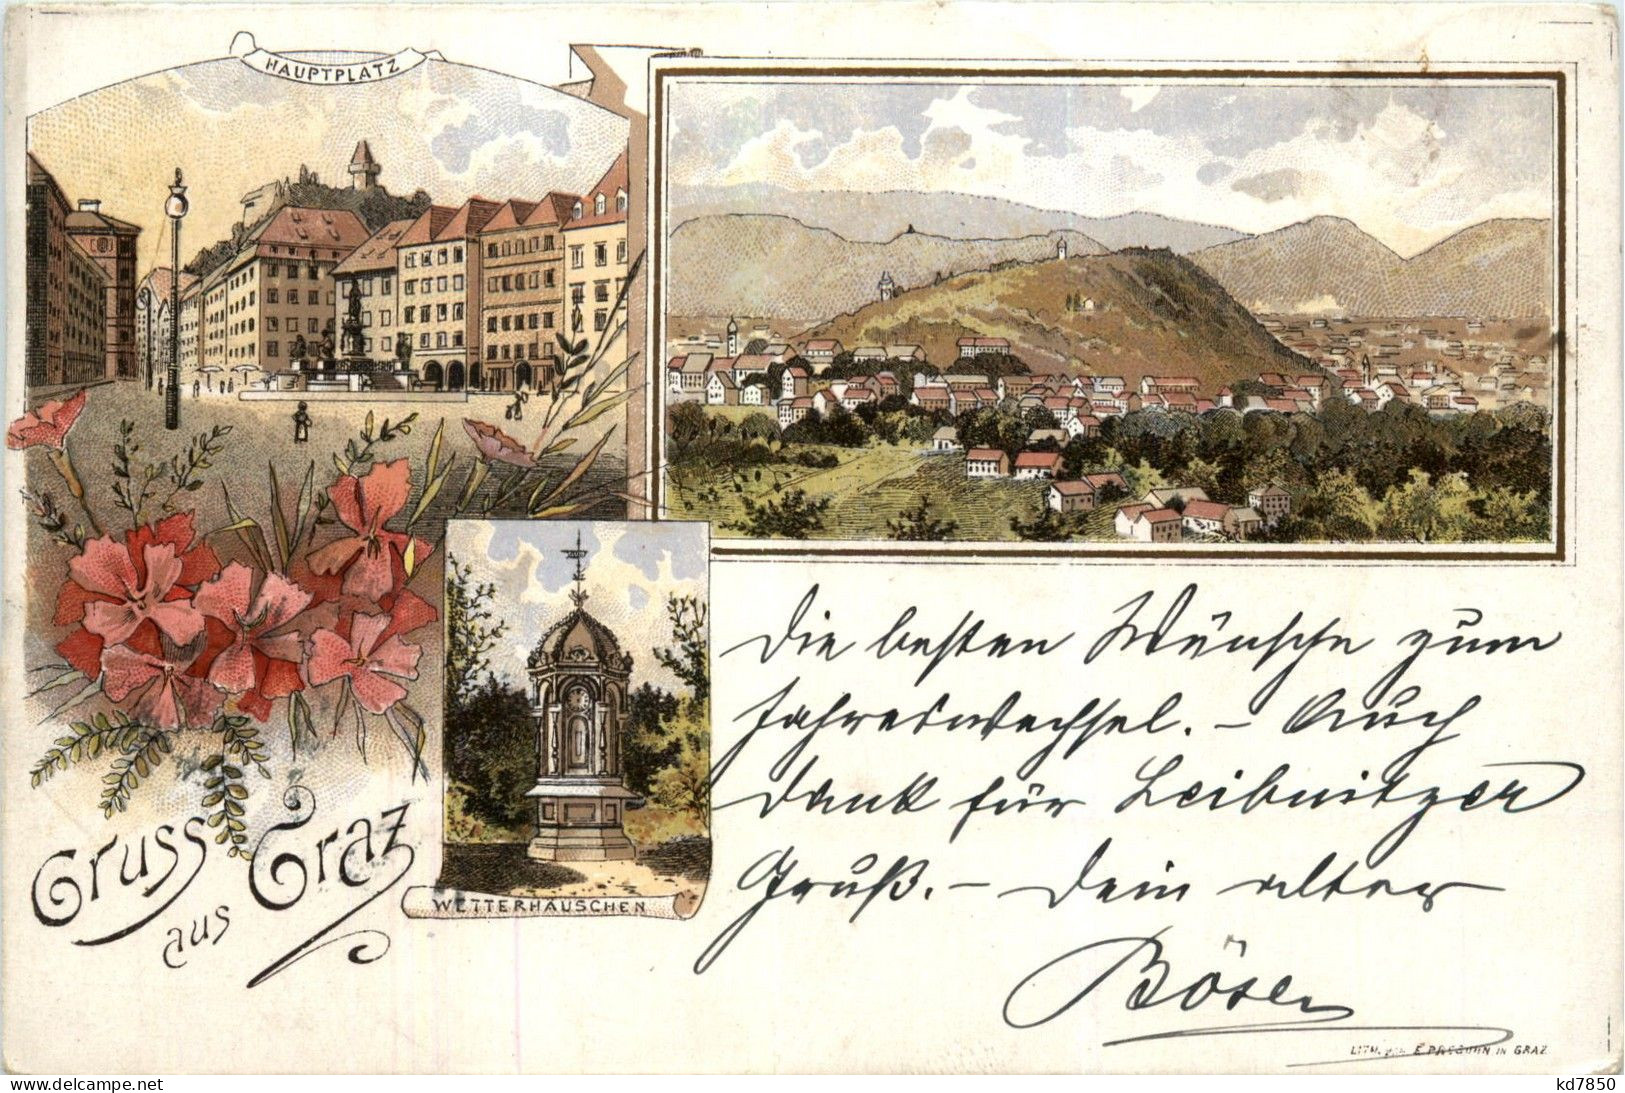 HAUPTPLATZ
Die besten Wünsche zum
Jahreswechsel. – Auch
Dank für Leibnitzer
Gruß. – Dein alter
Bösen
Gruss
aus
Graz
WETTERHÄUSCHEN
LITH. E. PRESUHN IN GRAZ
www.delcampe.net
kd7850